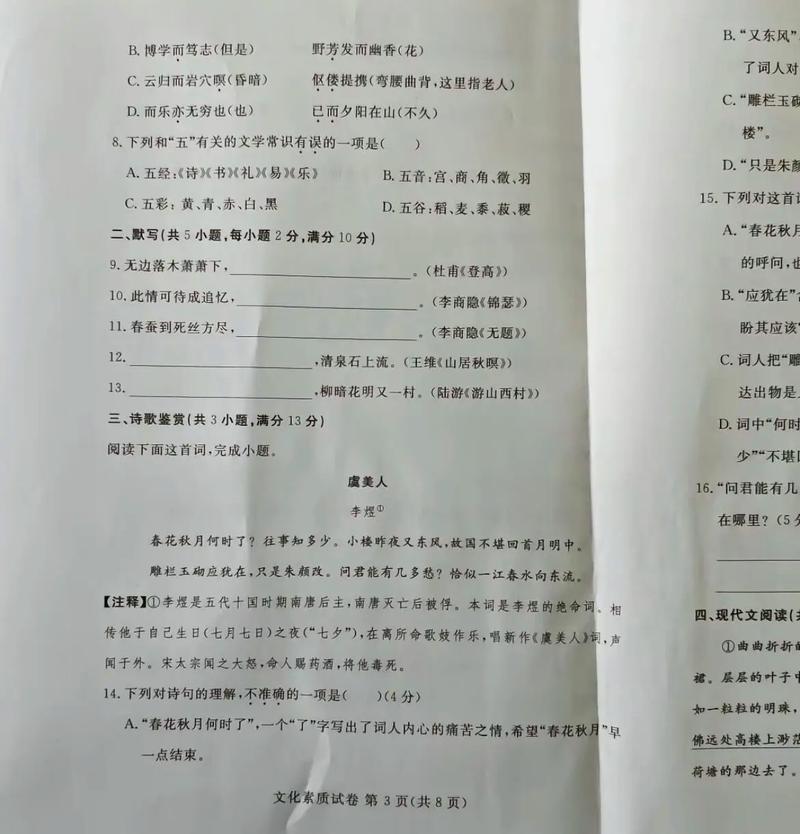 B. 博学而笃志(但是)　　野芳发而幽香(花)
C. 云归而岩穴暝(昏暗)　　伛偻提携(弯腰曲背,这里指老人)
D. 而乐亦无穷也(也)　　已而夕阳在山(不久)
8. 下列和“五”有关的文学常识有误的一项是(　　)
A. 五经:《诗》《书》《礼》《易》《乐》　　B. 五音:宫、商、角、徵、羽
C. 五彩: 黄、青、赤、白、黑　　D. 五谷:稻、麦、黍、菽、稷
二、默写(共 5 小题,每小题 2 分,满分 10 分)
9. 无边落木萧萧下,____________________。(杜甫《登高》)
10. 此情可待成追忆,____________________。(李商隐《锦瑟》)
11. 春蚕到死丝方尽,____________________。(李商隐《无题》)
12. ____________________,清泉石上流。(王维《山居秋暝》)
13. ____________________,柳暗花明又一村。(陆游《游山西村》)
三、诗歌鉴赏(共 3 小题,满分 13 分)
阅读下面这首词,完成小题。
虞美人
李煜①
春花秋月何时了? 往事知多少。小楼昨夜又东风,故国不堪回首月明中。
雕栏玉砌应犹在,只是朱颜改。问君能有几多愁? 恰似一江春水向东流。
【注释】①李煜是五代十国时期南唐后主,南唐灭亡后被俘。本词是李煜的绝命词。相
传他于自己生日(七月七日)之夜(“七夕”),在寓所命歌妓作乐,唱新作《虞美人》词,声
闻于外。宋太宗闻之大怒,命人赐药酒,将他毒死。
14. 下列对诗句的理解,不准确的一项是(　　)(4 分)
A. “春花秋月何时了”,一个“了”字写出了词人内心的痛苦之情,希望“春花秋月”早
一点结束。
文化素质试卷 第 3 页(共 8 页)
B. “又东风”
了词人对
C. “雕栏玉砌
楼”。
D. “只是朱颜
15. 下列对这首词
A. “春花秋月
的呼问,也
B. “应犹在”
盼其应该
C. 词人把“雕
达出物是
D. 词中“何时
少”“不堪回
16. “问君能有几
在哪里? (5 分
四、现代文阅读(共
①曲曲折折的
裙。层层的叶子中
如一粒粒的明珠,
佛远处高楼上渺茫
荷塘的那边去了。